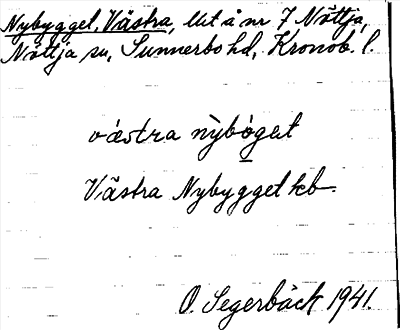 Nybygget, Västra, lht å nr 7 Nöttja,
Nöttja sn, Sunnerbo hd, Kronob. l.
våstra nỳbo̱get
Västra Nybygget kb.
O. Segerbäck 1941.